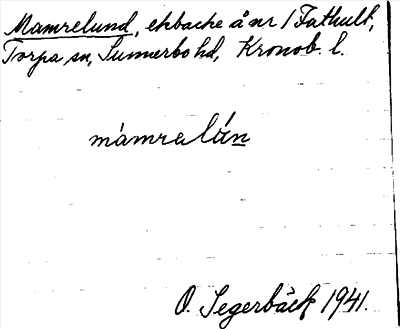 Mamrelund, ekbacke å nr 1 Fathult,
Torpa sn, Sunnerbo hd, Kronob. l.
màmrelún
O. Segerbäck 1941.